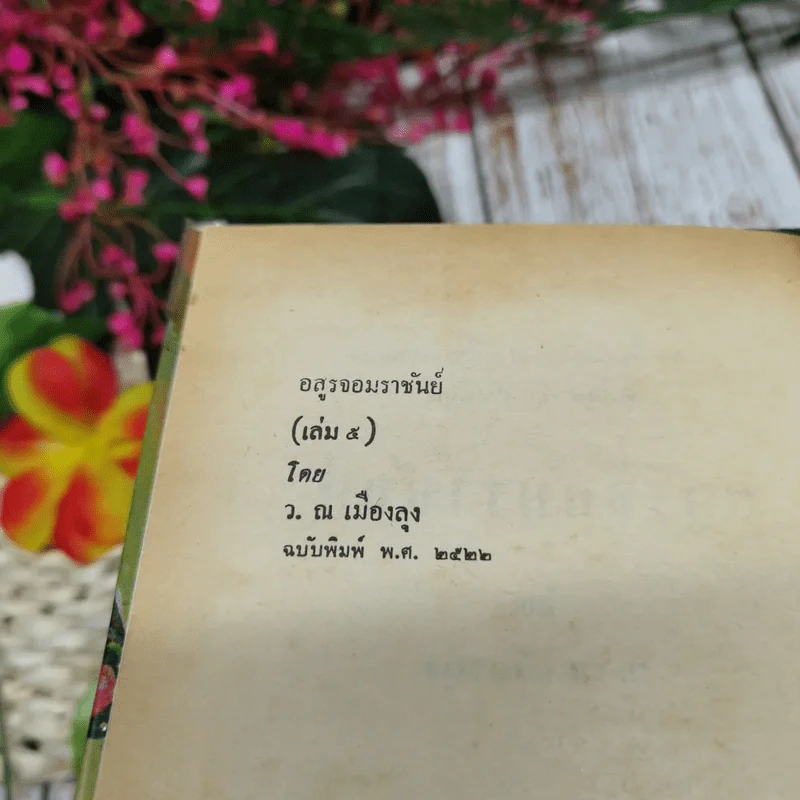 อสูรจอมราชันย์
(เล่ม ๕)
โดย
ว. ณ เมืองลุง
ฉบับพิมพ์ พ.ศ. ๒๕๒๒